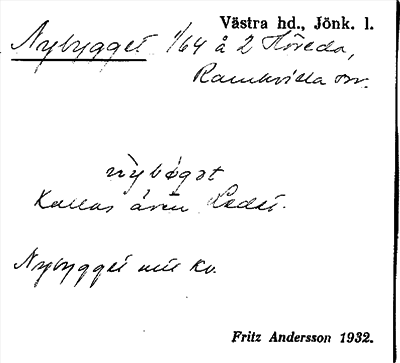 Västra hd., Jönk. l.
Nybygget 1/64 å 2 Höreda,
Ramkvilla sn.
nỳbø̀gət
Kallas även Ledet.
Nybygget utit kv.
Fritz Andersson 1932.